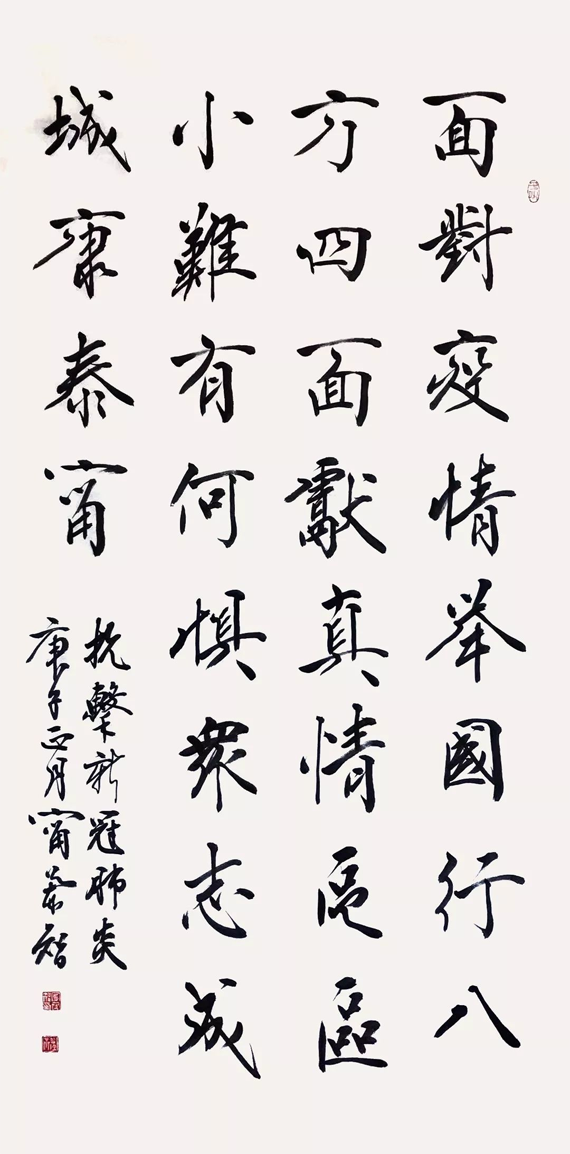 面對疫情举國行八
方四面獻真情區區
小難有何惧衆志成
城康泰甯
抗擊新冠肺炎
庚子正月甯智